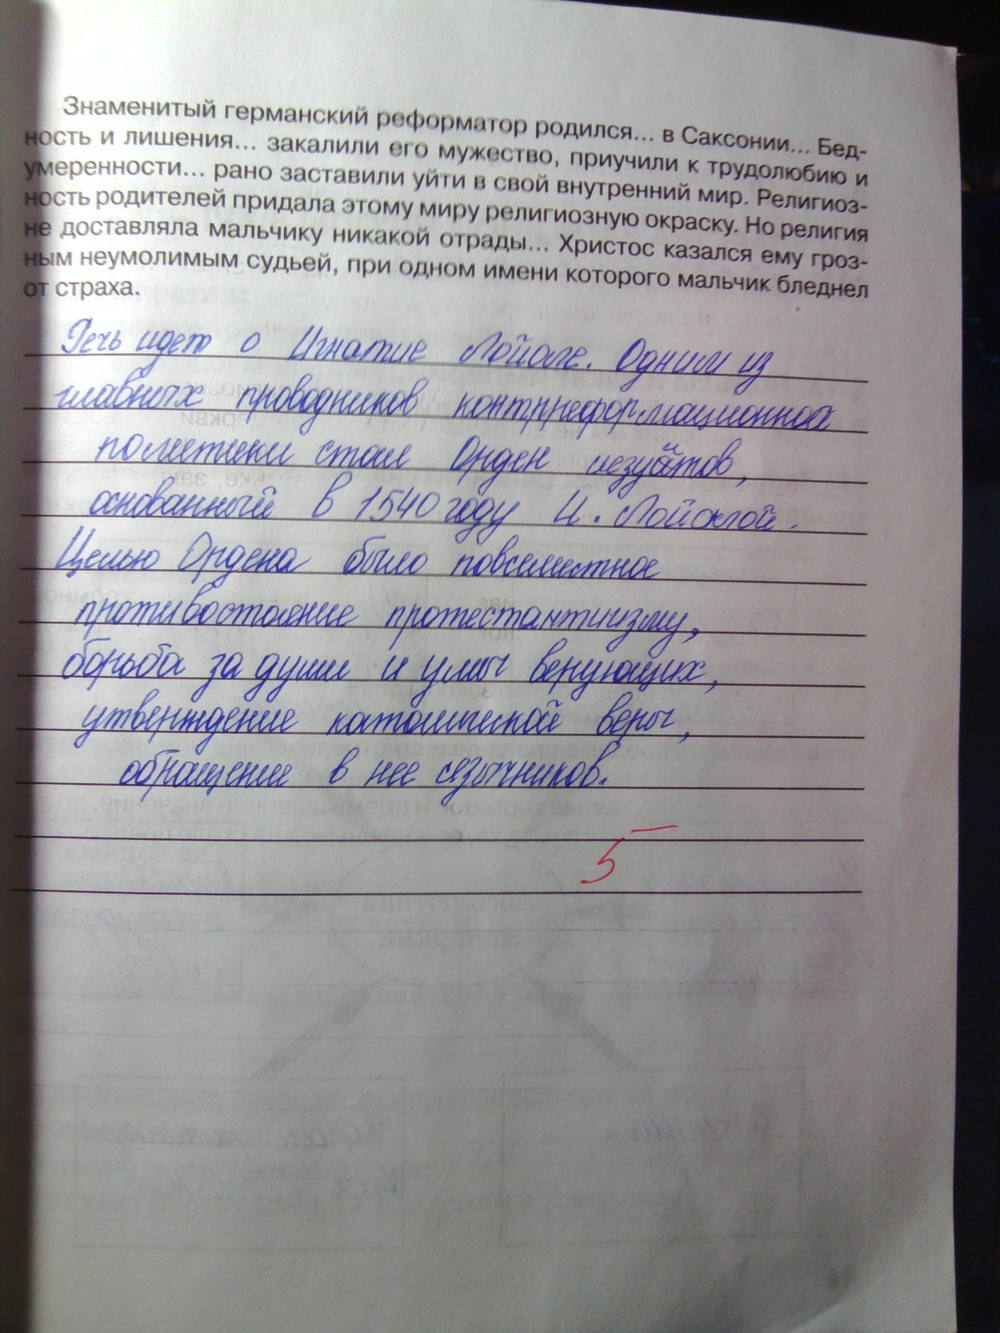 Знаменитый германский реформатор родился... в Саксонии... Бед-
ность и лишения... закалили его мужество, приучили к трудолюбию и
умеренности... рано заставили уйти в свой внутренний мир. Религиоз-
ность родителей придала этому миру религиозную окраску. Но религия
не доставляла мальчику никакой отрады... Христос казался ему гроз-
ным неумолимым судьей, при одном имени которого мальчик бледнел
от страха.
Речь идет о Игнатие Лойоле. Одним из
главных проводников контрреформационной
политики стал Орден иезуитов,
основанный в 1540 году И. Лойолой.
Целью Ордена было повсеместное
противостояние протестантизму,
борьба за души и умы верующих,
утверждение католической веры,
обращение в нее язычников.
5